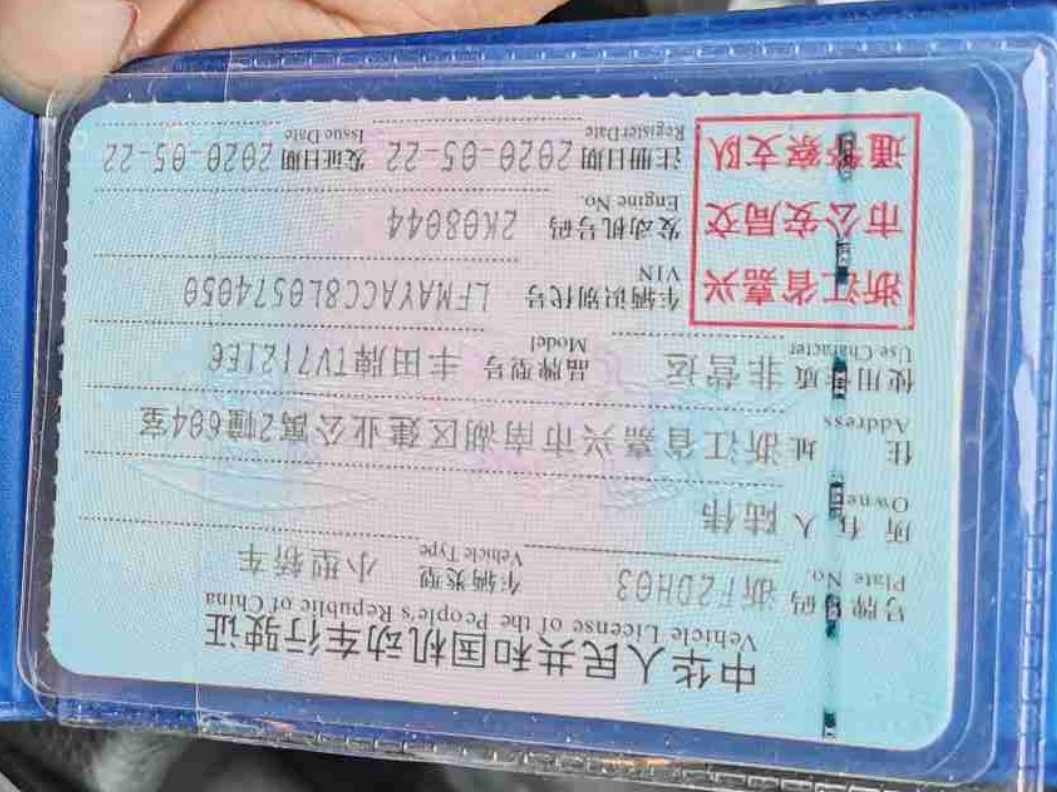 中华人民共和国机动车行驶证
Vehicle License of the People's Republic of China
号牌号码 浙F2DH03 车辆类型 小型轿车
Plate No. Vehicle Type
所有人 陆伟
Owner
住址 浙江省嘉兴市南湖区建业公寓2幢604室
Address
使用性质 非营运 品牌型号 丰田牌TV7121E6
Use Character Model
浙江省嘉兴
市公安局交
通警察支队
车辆识别代号 LFMAYACC8L0574050
VIN
发动机号码 2K08044
Engine No.
注册日期 2020-05-22 发证日期 2020-05-22
Register Date Issue Date